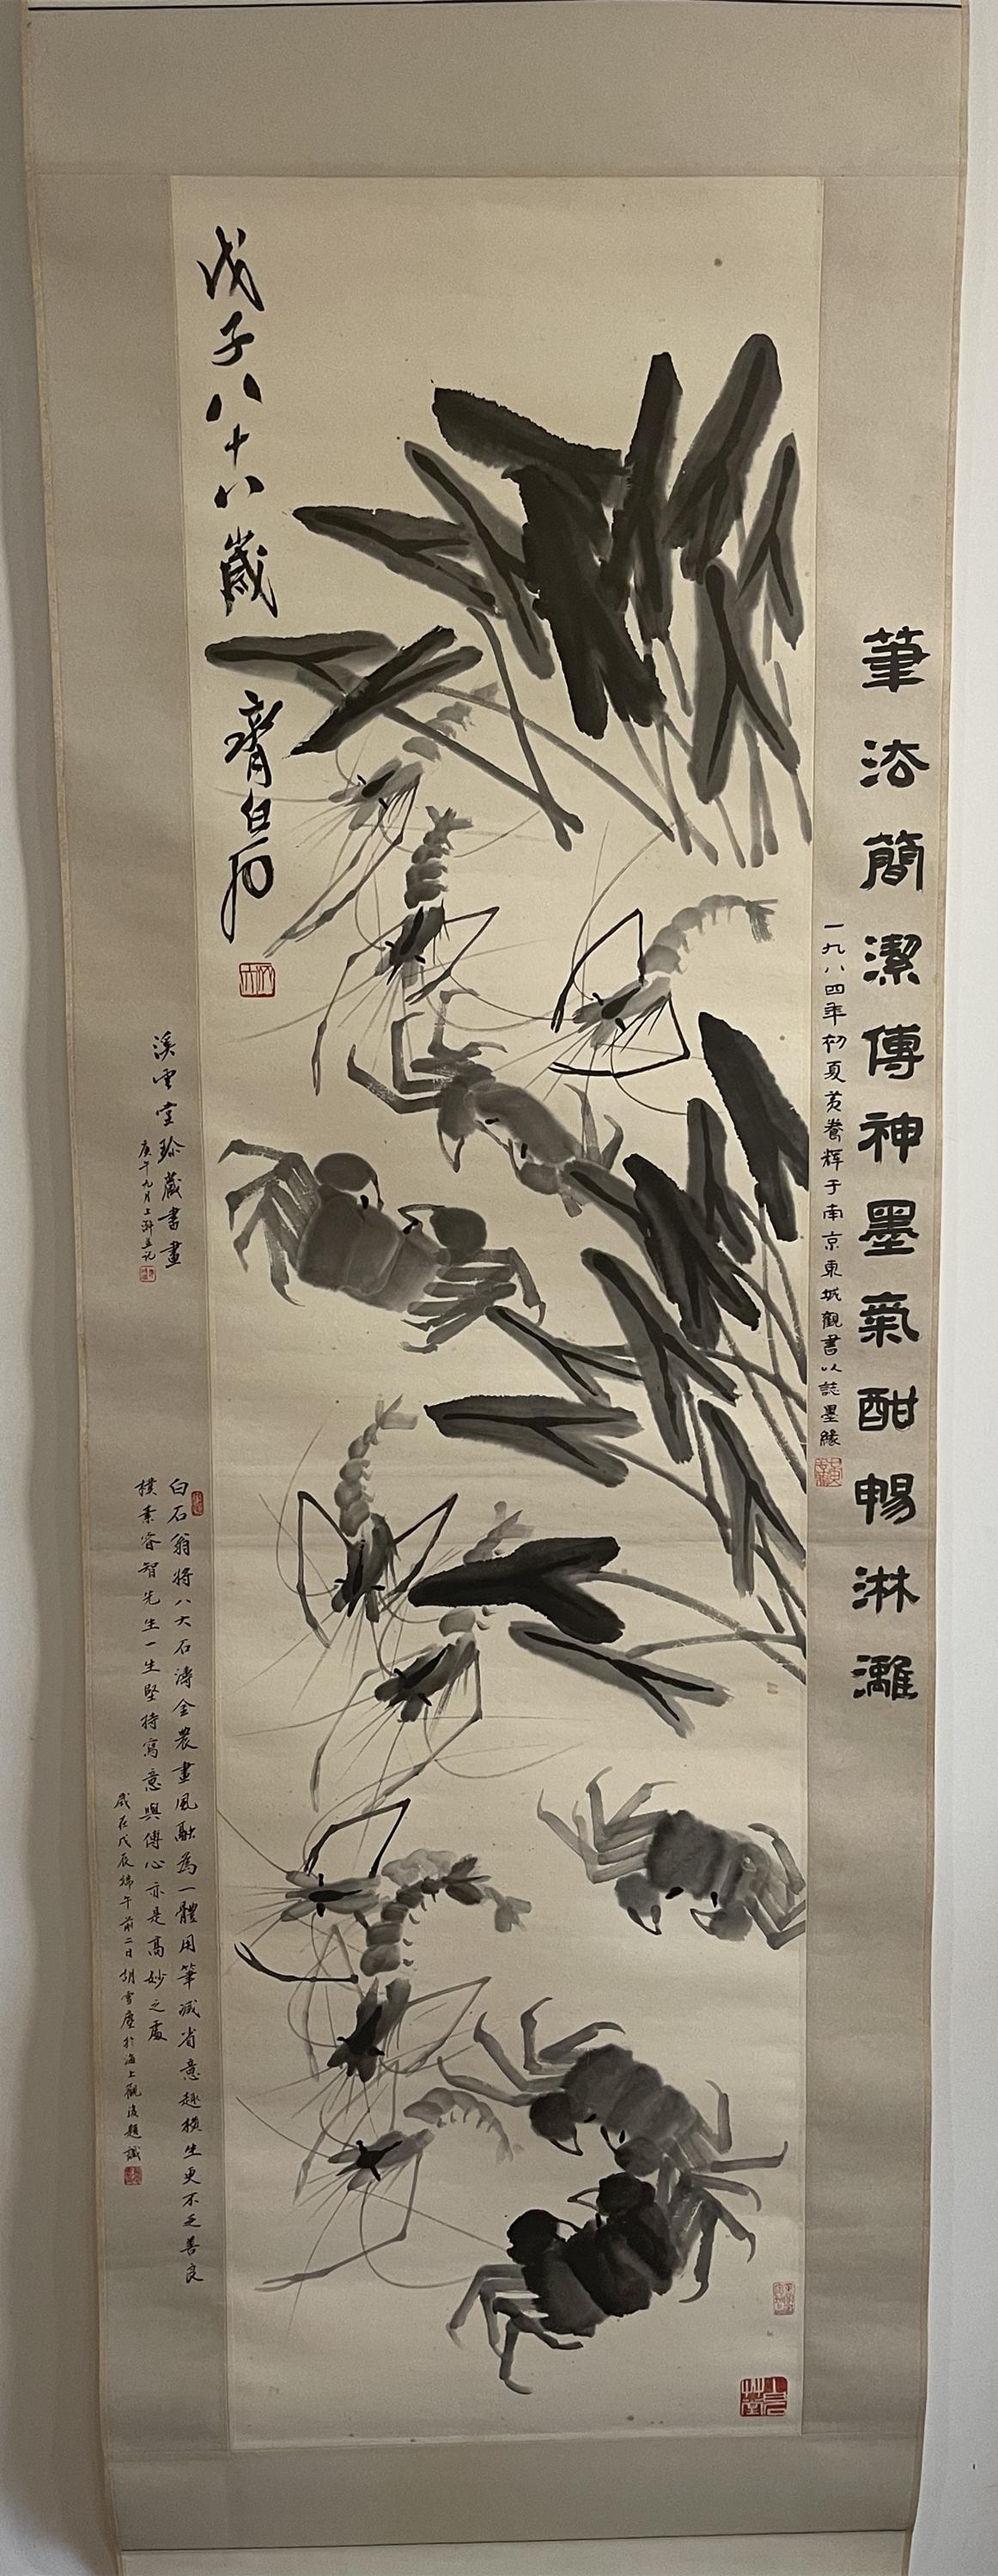 筆法簡潔傳神墨氣酣暢淋灕
一九八四年初夏黄養辉于南京東城觀書以誌墨緣
戊子八十八歲
齊白石
溪雲堂珍藏書畫
庚午九月上澣並記
白石翁将八大石濤金農畫風融為一體用筆减省意趣横生更不乏善良
樸素睿智先生一生堅持寫意與傳心亦是高妙之處
歲在戊辰端午前二日胡雪塵於海上觀後題識